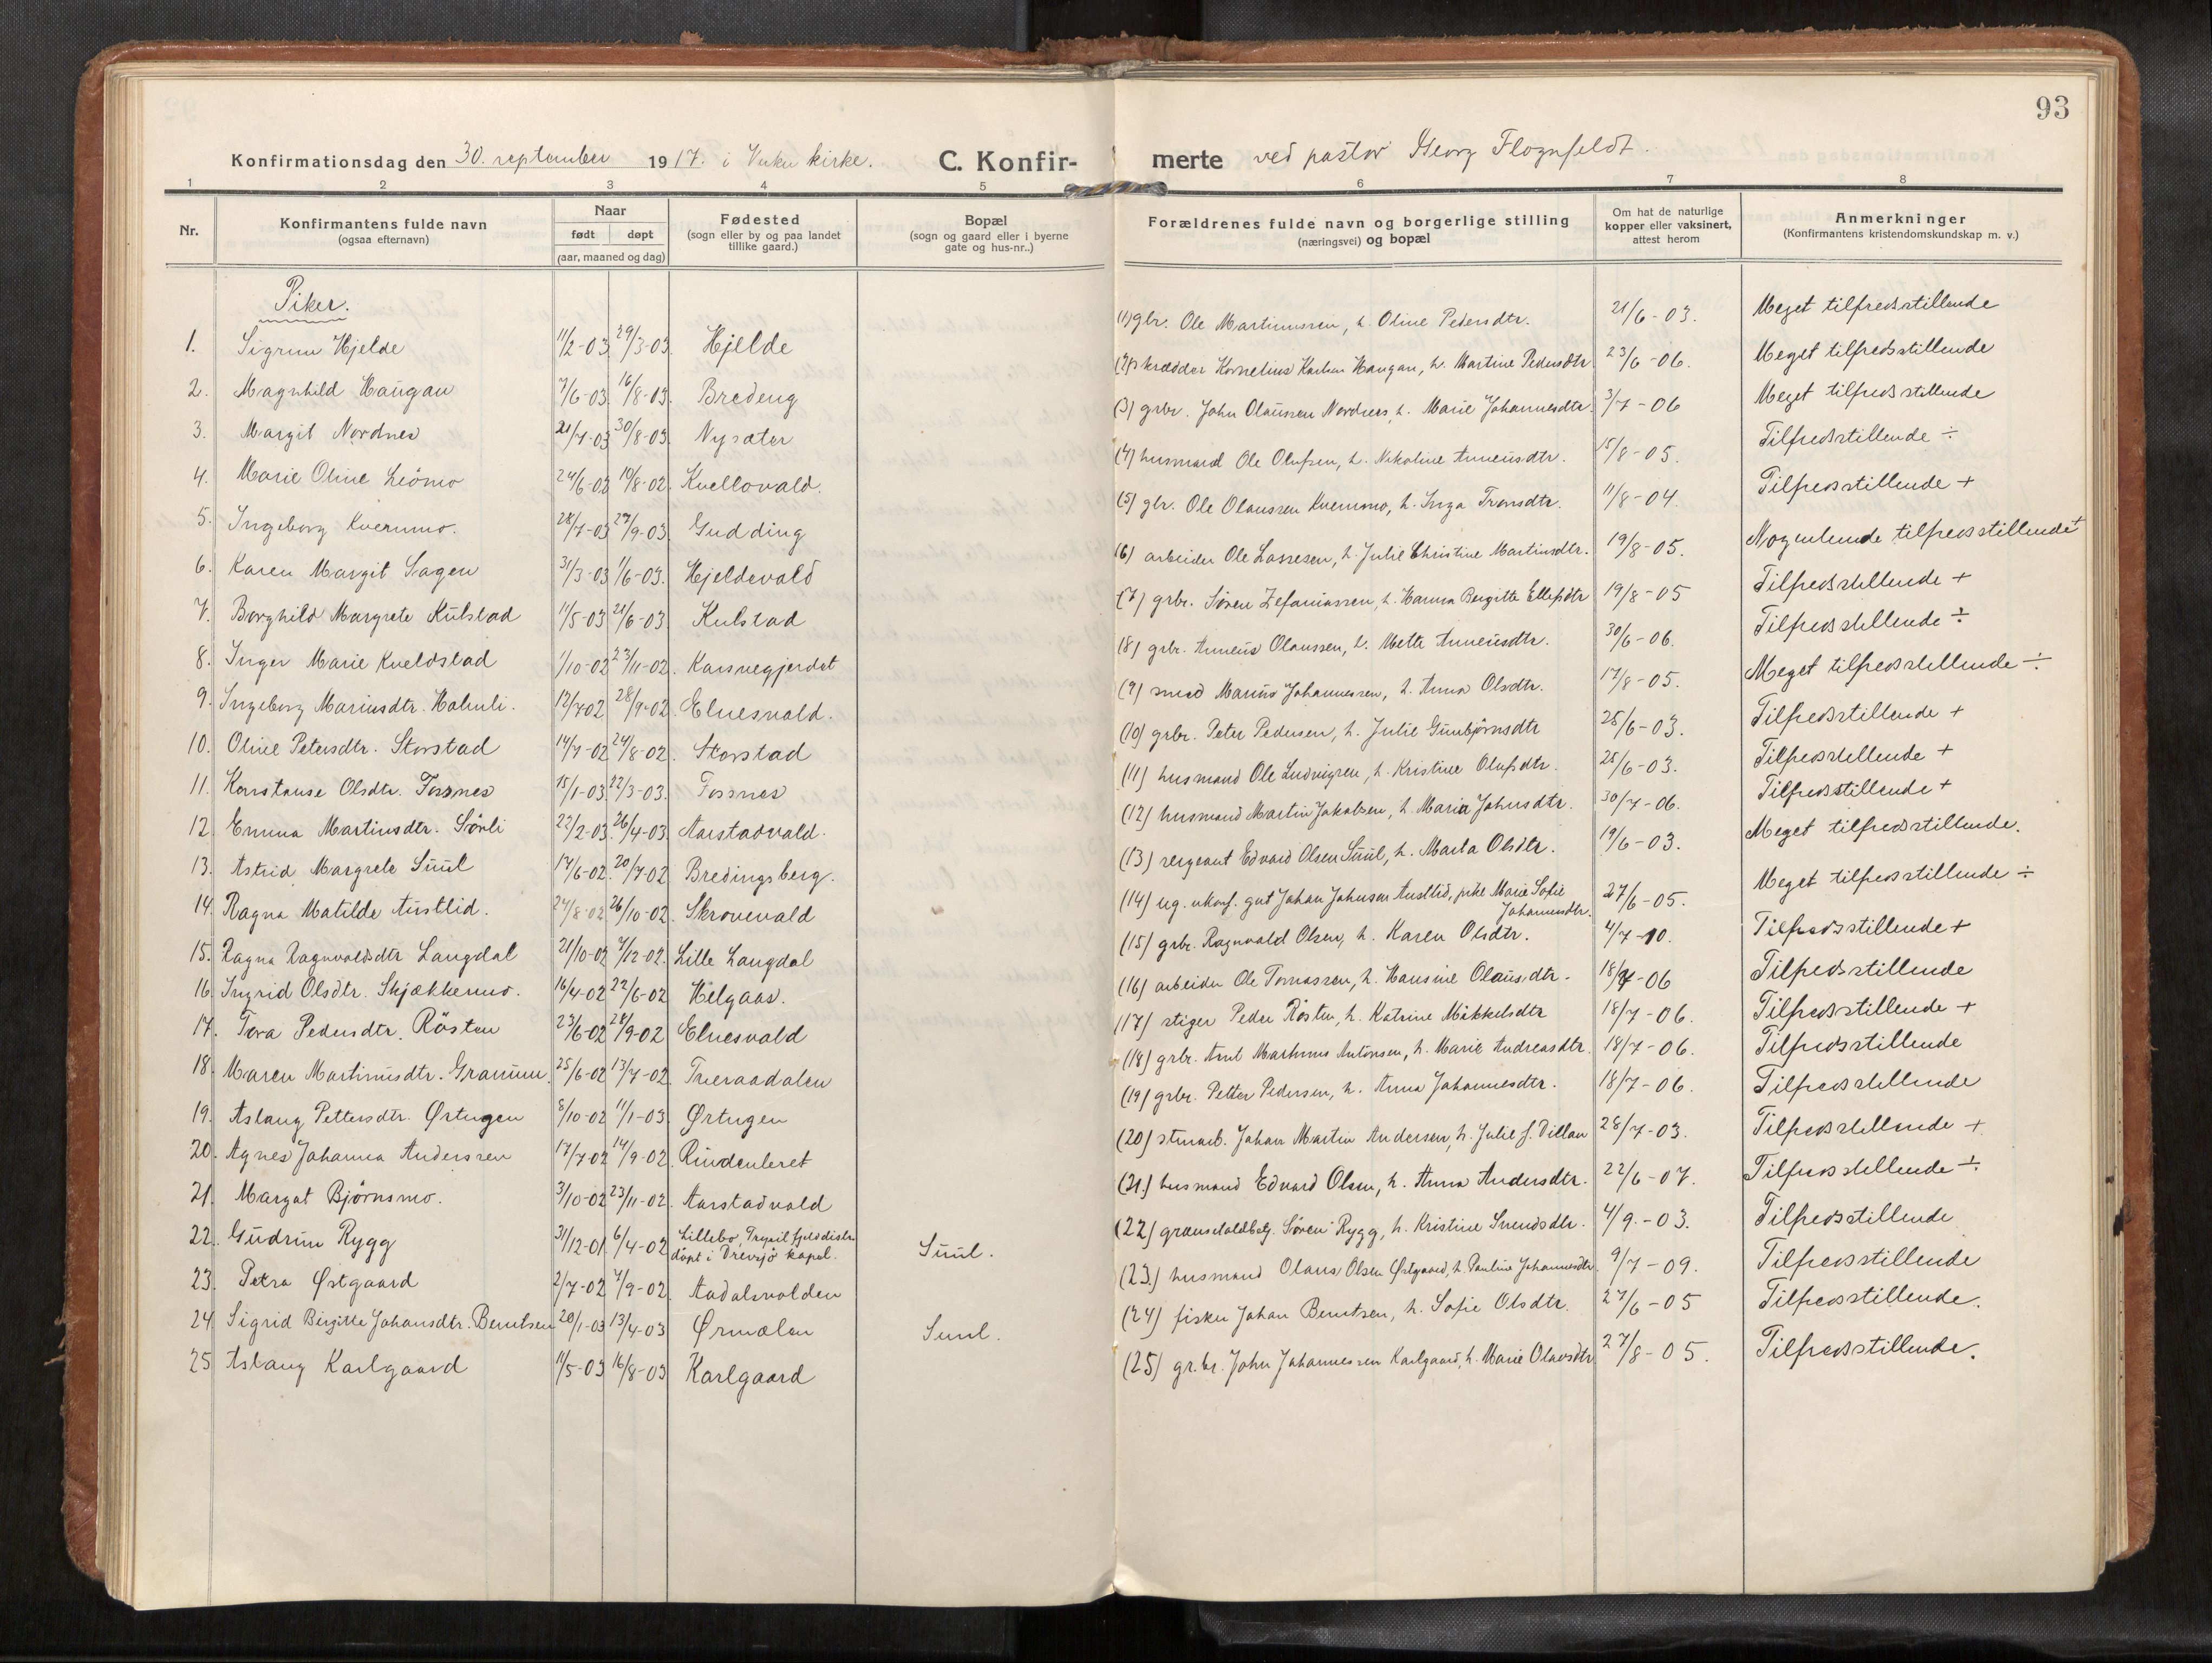 93
Konfirmationsdag den 30. september 1917. i Vuku kirke. C. Konfir-
merte ved pastor Georg Flognfeldt.
1 2 3 4 5 6 7 8
Nr. Konfirmantens fulde navn (ogsaa efternavn) Naar født døpt (aar, maaned og dag) Fødested (sogn eller by og paa landet tillike gaard.) Bopæl (sogn og gaard eller i byerne gate og hus-nr..) Forældrenes fulde navn og borgerlige stilling (næringsvei) og bopæl Om hat de naturlige kopper eller vaksinert, attest herom Anmerkninger (Konfirmantens kristendomskundskap m. v.)
Piker.
1. Sigrun Hjelde 11/2-03 29/3-03. Hjelde (1) gbr. Ole Martinussen, h. Oline Pedersdtr. 21/6-03. Meget tilfredsstillende
2. Magnhild Haugan 7/6-03 16/8-03. Bredeng (2) skrædder Kornelius Karlsen Haugan, h. Martine Pedersdtr 23/6-06. Meget tilfredsstillende
3. Margit Nordnes 21/7-03 30/8-03. Nysæter (3) grbr. John Olaussen Nordnes, h. Marie Johannesdtr. 3/7-06 Meget tilfredsstillende
4. Marie Oline Leömo 24/6-02 10/8-02. Kvellovald. (4) husmand Ole Olufsen, h. Nikoline Anneusdtr. 15/8-05. Tilfredsstillende ÷
5. Ingeborg Kvernmo. 28/7-03 27/9-03. Gudding (5) gbr. Ole Olaussen Kvernmo, h. Inga Tronsdtr. 11/8-04. Tilfredsstillende +
6. Karen Margit Sagen 31/3-03 1/6-03. Hjeldevald (6) arbeider Ole Lassesen, h. Julie Christine Martinsdtr. 19/8-05. Nogenlunde tilfredsstillende +
7. Borghild Margrete Kulstad 11/5-03 21/6-03 Kulstad (7) grbr. Søren Zefaniassen, h. Hanna Bergitte Ellefsdtr 19/8-05 Tilfredsstillende +
8. Inger Marie Kveldstad 1/10-02 23/11-02. Karsvegjerdet (8) grbr. Anneus Olaussen, h. Mette Anneusdtr. 30/6-06. Tilfredsstillende ÷
9. Ingeborg Mariusdtr. Holmli. 12/7 02 28/9-02. Elnesvald. (9) smed Marius Johannessen, h. Anna Olsdtr. 17/8-05. Meget tilfredsstillende ÷
10. Oline Petersdtr. Storstad 14/7-02 24/8-02. Storstad (10) grbr. Peter Pedersen, h. Julie Gunbjørnsdtr 25/6-03. Tilfredsstillende +
11. Konstanse Olsdtr. Fossnes 15/1-03. 22/3-03. Fossnes (11) husmand Ole Ludvigsen, h. Kristine Olufsdtr. 25/6-03. Tilfredsstillende +
12. Emma Martinsdtr. Sörli 22/2-03. 26/4-03 Aarstadvald. (12) husmand Martin Jakobsen, h. Maria Johnsdtr. 30/7-06. Tilfredsstillende +
13. Astrid Margrete Suul 14/6-02. 20/7-02 Bredingsberg. (13) sergeant Edvard Olsen Suul, h. Marta Olsdtr. 19/6-03. Meget tilfredsstillende.
14. Ragna Matilde Austlid. 24/8-02 26/10-02. Skrovevald (14) ug. ukonf. gut Johan Johnsen Austlid, pike Marie Sofie Johannesdtr. 27/6-05. Meget tilfredsstillende ÷
15. Ragna Ragnvaldsdtr Langdal 21/10-02 7/12-02. Lille Langdal (15) grbr. Ragnvald Olsen, h. Karen Olsdtr. 4/7-10. Tilfredsstillende +
16. Ingrid Olsdtr. Skjækkermo. 16/4-02 22/6-02 Helgaas. (16) arbeider Ole Tomassen, h. Hansine Olausdtr. 18/7-06 Tilfredsstillende
17. Tora Pedersdtr. Rösten 23/6-02 28/9-02 Elnesvald (17) stiger Peder Rösten, h. Katrine Mikkelsdtr 18/7-06. Tilfredsstillende +
18. Maren Martinusdtr. Granum. 25/6-02 13/7-02. Træraadalen (18) grbr. Arnt Martinus Antonsen, h. Marie Andreasdtr. 18/7-06. Tilfredsstillende
19. Aslaug Pettersdtr. Ørtugen 8/10-02 11/1-03 Ørtugen (19) grbr. Petter Pedersen, h. Anna Johannesdtr. 18/7-06. Tilfredsstillende
20. Agnes Johanna Anderssen 17/7-02 14/9-02. Rindenleret (20) stenarb. Johan Martin Andersen, h. Julie f. Dillan 28/7-03. Tilfredsstillende +
21. Margot Björnsmo. 3/10-02 23/11-02. Aarstadvald (21.) husmand Edvard Olsen, h. Anna Andersdtr. 22/6-07. Tilfredsstillende ÷
22. Gudrun Rygg 31/12-01. 6/4-02 Lillebo, Trysil fjelddistr. döpt i Drevsjö kapel. Suul. (22) grænsetoldbetj. Sören Rygg, h. Kristine Svendsdtr. 4/9.-03. Tilfredsstillende
23. Petra Østgaard 2/7-02 7/9-02. Aadalsvolden (23.) husmand Olaus Olsen Østgaard, h. Pauline Johannesdtr. 9/7-09. Tilfredsstillende
24. Sigrid Birgitte Johansdtr. Berntsen 20/1-03 13/4-03 Ørmelen Suul. (24) fisker Johan Berntsen, h. Sofie Olsdtr. 27/6-05 Tilfredsstillende.
25 Aslaug Karlgaard 11/5-03 16/8-03 Karlgaard (25) gr.br. John Johannessen Karlgaard, h. Marie Olausdtr 27/8-05. Tilfredsstillende.